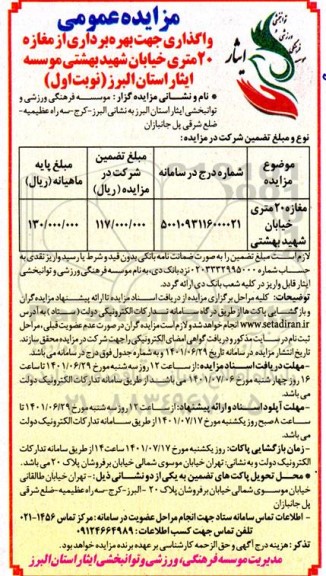 مزایده عمومی
واگذاری جهت بهره برداری از مغازه
۲۰ متری خیابان شهید بهشتی موسسه
ایثار استان البرز (نوبت اول)
ایثار
نام و نشانی مزایده گزار: موسسه فرهنگی ورزشی و
توانبخشی ایثار استان البرز به نشانی البرز-کرج-سه راه عظیمیه-
ضلع شرقی پل جانبازان
نوع و مبلغ تضمین شرکت در مزایده:
موضوع مزایده
شماره درج در سامانه
مبلغ تضمین شرکت در مزایده (ریال)
مبلغ پایه ماهیانه (ریال)
مغازه ۲۰ متری خیابان شهید بهشتی
۵۰۰۱۰۹۳۱۱۶۰۰۰۰۲۱
۱۱۷/۰۰۰/۰۰۰
۱۳۰/۰۰۰/۰۰۰
لازم است مبلغ تضمین را به صورت ضمانت نامه بانکی بدون قید و شرط یا رسید واریز نقدی به
حساب شماره ۰۲۰۳۳۳۲۹۹۵۰۰۰ نزد بانک دی، به نام موسسه فرهنگی ورزشی و توانبخشی
ایثار قابل واریز در کلیه شعب بانک دی ارائه گردد.
توضیحات: کلیه مراحل برگزاری مزایده از دریافت اسناد مزایده تا ارائه پیشنهاد مزایده گران
و بازگشایی پاکت ها از طریق درگاه سامانه تدارکات الکترونیکی دولت (ستاد) به آدرس
www.setadiran.ir انجام خواهد شد و لازم است مزایده گران در صورت عدم عضویت قبلی، مراحل
ثبت نام در سایت مذکور و دریافت گواهی امضای الکترونیکی را جهت شرکت در مزایده محقق سازند.
تاریخ انتشار مزایده در سامانه تاریخ ۱۴۰۱/۰۶/۲۹ و به شماره جدول فوق درج در سامانه می باشد.
-مهلت دریافت اسناد مزایده: از ساعت ۱۲ روز سه شنبه مورخ ۱۴۰۱/۰۶/۲۹ تا ساعت
۱۶ روز چهار شنبه مورخ ۱۴۰۱/۰۷/۰۶ می باشد از طریق سامانه تدارکات الکترونیک دولت
می باشد.
-مهلت آپلود اسناد و ارائه پیشنهاد: از ساعت ۱۲ روز سه شنبه مورخ ۱۴۰۱/۰۶/۲۹ تا
ساعت ۸ صبح روز یکشنبه مورخ ۱۴۰۱/۰۷/۱۷ از طریق سامانه تدارکات الکترونیک دولت
می باشد.
- زمان بازگشایی پاکات: روز یکشنبه مورخ ۱۴۰۱/۰۷/۱۷ ساعت ۱۴ از طریق سامانه تدارکات
الکترونیک دولت و به نشانی: تهران خیابان موسوی شمالی خیابان برفروشان پلاک ۲۰ می باشد.
محل تحویل پاکت های تضمین به یکی از دو نشانی ذیل: - تهران خیابان طالقانی
خیابان موسوی شمالی خیابان برفروشان پلاک ۲۰ -البرز-کرج-سه راه عظیمیه-ضلع شرقی
پل جانبازان
- اطلاعات تماس سامانه ستاد جهت انجام مراحل عضویت در سامانه: مرکز تماس ۱۴۵۶-۰۲۱
تلفن تماس جهت کسب اطلاعات: ۰۹۱۲۴۶۶۴۹۸۹
تذکر: هزینه درج آگهی و حق الزحمه کارشناسی بر عهده برنده مزایده خواهد بود.
مدیریت موسسه فرهنگی، ورزشی و توانبخشی ایثار استان البرز